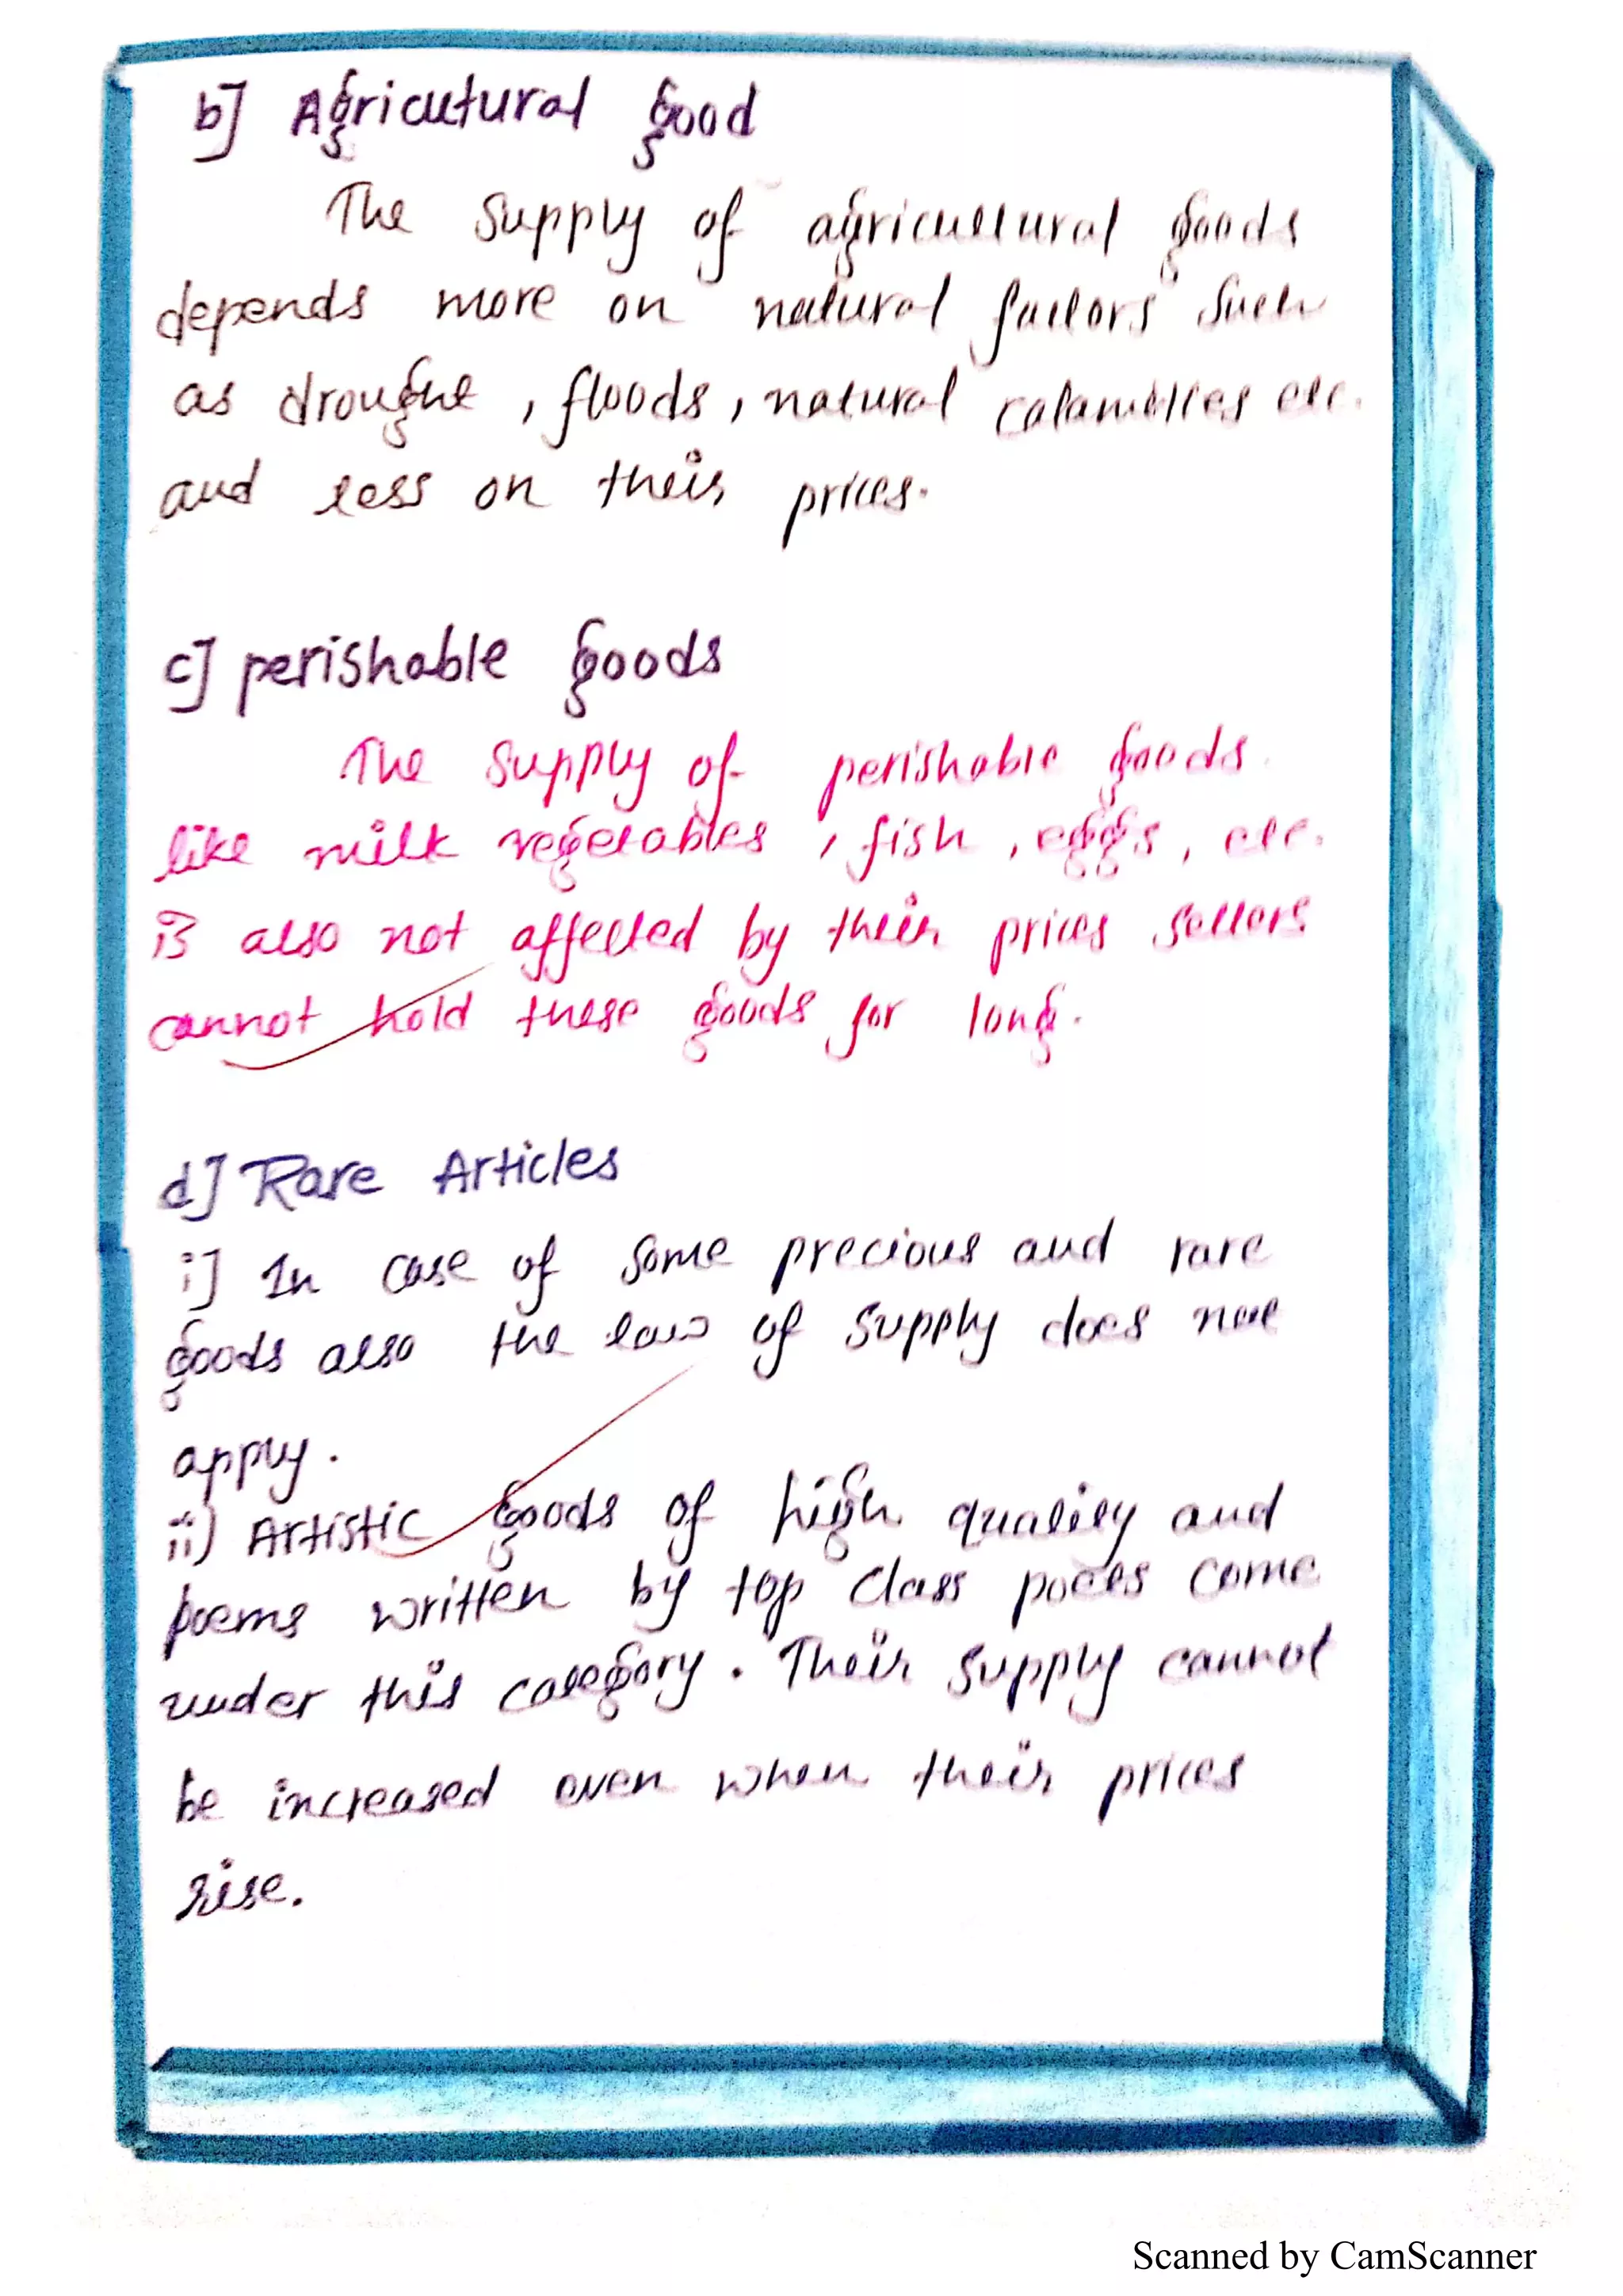 b] Agricutural good
The supply of agricultural goods
depends more on natural factors such
as drought , floods , natural calamities etc.
and less on their prices.
c] perishable goods
The supply of perishable goods
like milk vegetables , fish , eggs , etc.
is also not affected by their prices sellers
cannot hold these goods for long.
d] Rare Articles
i] In case of some precious and rare
goods also the law of supply does not
apply.
ii) Artistic goods of high quality and
poems written by top class poets come
under this category. Their supply cannot
be increased even when their prices
rise.
Scanned by CamScanner